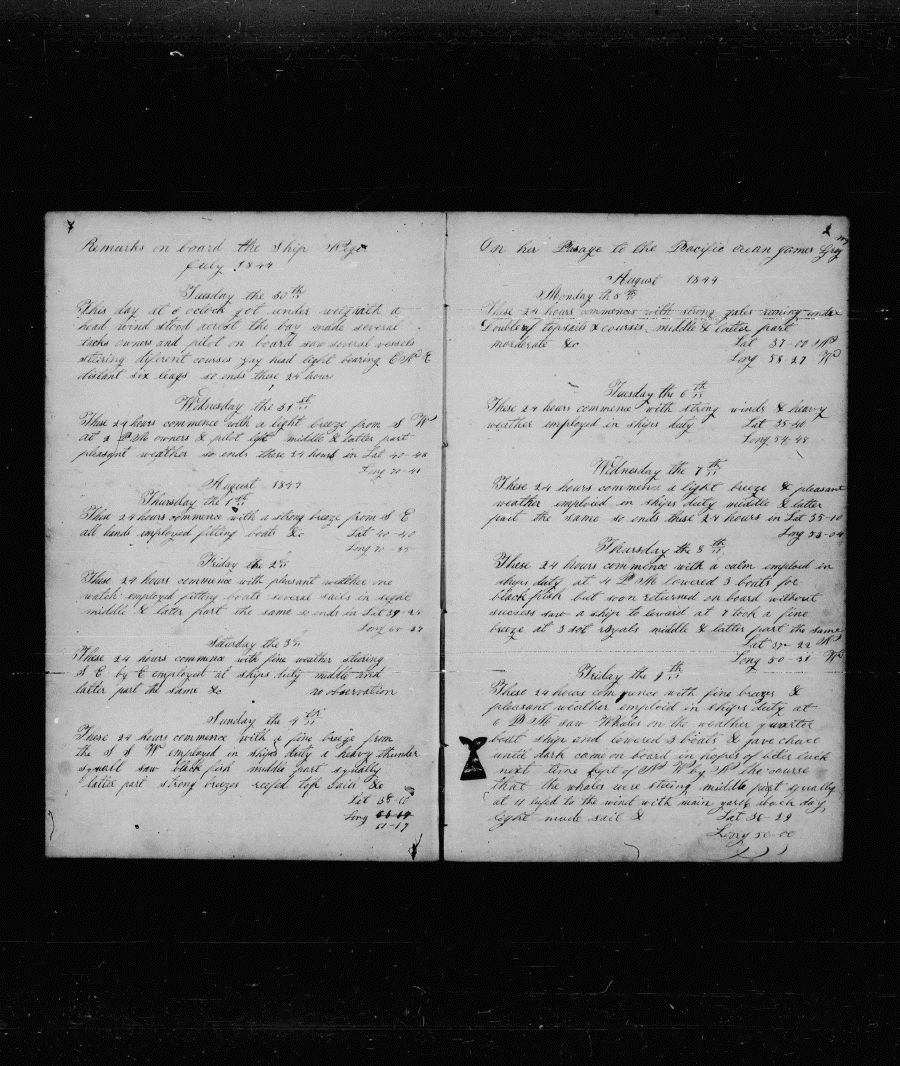 Remarks on board the Ship
July 1844
Tuesday the 30th
This day at 6 oclock got under weigh with a
head wind stood across the bay made several
tacks owners and pilot on board saw several vessels
stearing diferent courses gay had light bearing E N E
distant six leags so ends these 24 hours
Wednesday the 31st
These 24 hours commence with a light breeze from S W
at 2 P M owners & pilot left middle & latter part
pleasant weather so ends these 24 hours in Lat 40-48
Long 70-41
August 1844
Thursday the 1st
These 24 hours commence with a strong breeze from S E
all hands employed fitting boats &c Lat 40-40
Long 70-35
Friday the 2d
These 24 hours commence with pleasant weather one
watch employed fitting boats several sails in sight
middle & later part the same so ends in Lat 39-25
Long 66-27
Saturday the 3d
These 24 hours commence with fine weather stearing
S E by E employed at ships duty middle and
latter part the same &c no observation
Sunday the 4th
These 24 hours commence with a fine breeze from
the S S W employed in ships duty a heavy thunder
squall saw black fish middle part squally
latter part strong breezes reefed top sails &c
Lat 38-10
Long
61-17
On her Pasage to the Pacific ocean James Gray
August 1844
Monday th 5th
These 24 hours commences with strong gales runing under
Doublereef topsails & courses, middle & latter part
morderate &c Lat 37-00 N
Long 58-27 W
Tuesday the 6th
These 24 hours commence with strong winds & heavy
weather employed in ships duty Lat 35-40
Long 54-48
Wednesday the 7th
These 24 hours commence a light breeze & pleasant
weather emploid in ships duty middle & latter
part the same so ends these 24 hours in Lat 35-10
Long 53-04
Thursday the 8th
These 24 hours commence with a calm emploid in
ships duty at 4 P M lowered 3 boats for
blackfish but soon returned on board without
success saw a ship to leward at 7 took a fine
breeze at 3 set royals middle & latter part the same
Lat 37-22 N
Long 50-31 W
Friday the 9th
These 24 hours commence with fine breezes &
pleasant weather emploid in ships duty at
6 P M saw Whales on the weather quarter
ship and lowered 3 boats & gave chace
until dark came on board in hopes of beter luck
next time kept of N W by N the course
that the whales were stearing middle part squally
at 11 lufed to the wind with main yard aback day
light made sail & Lat 36-29
Long 50-00